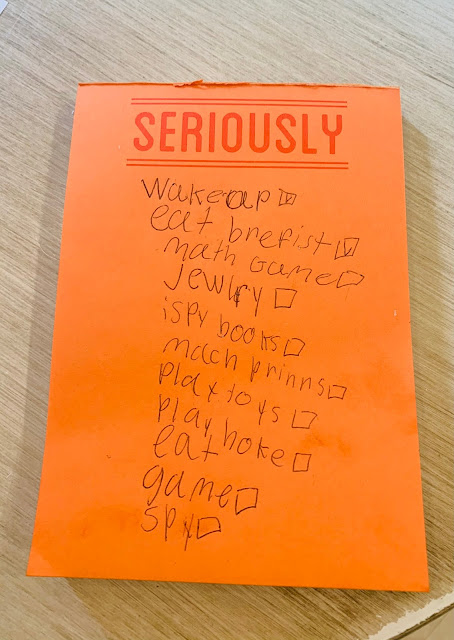 SERIOUSLY
wake up
eat brefist
math Game
Jewlry
ispy books
mach prinns
play toys
play hoke
eat
game
spy